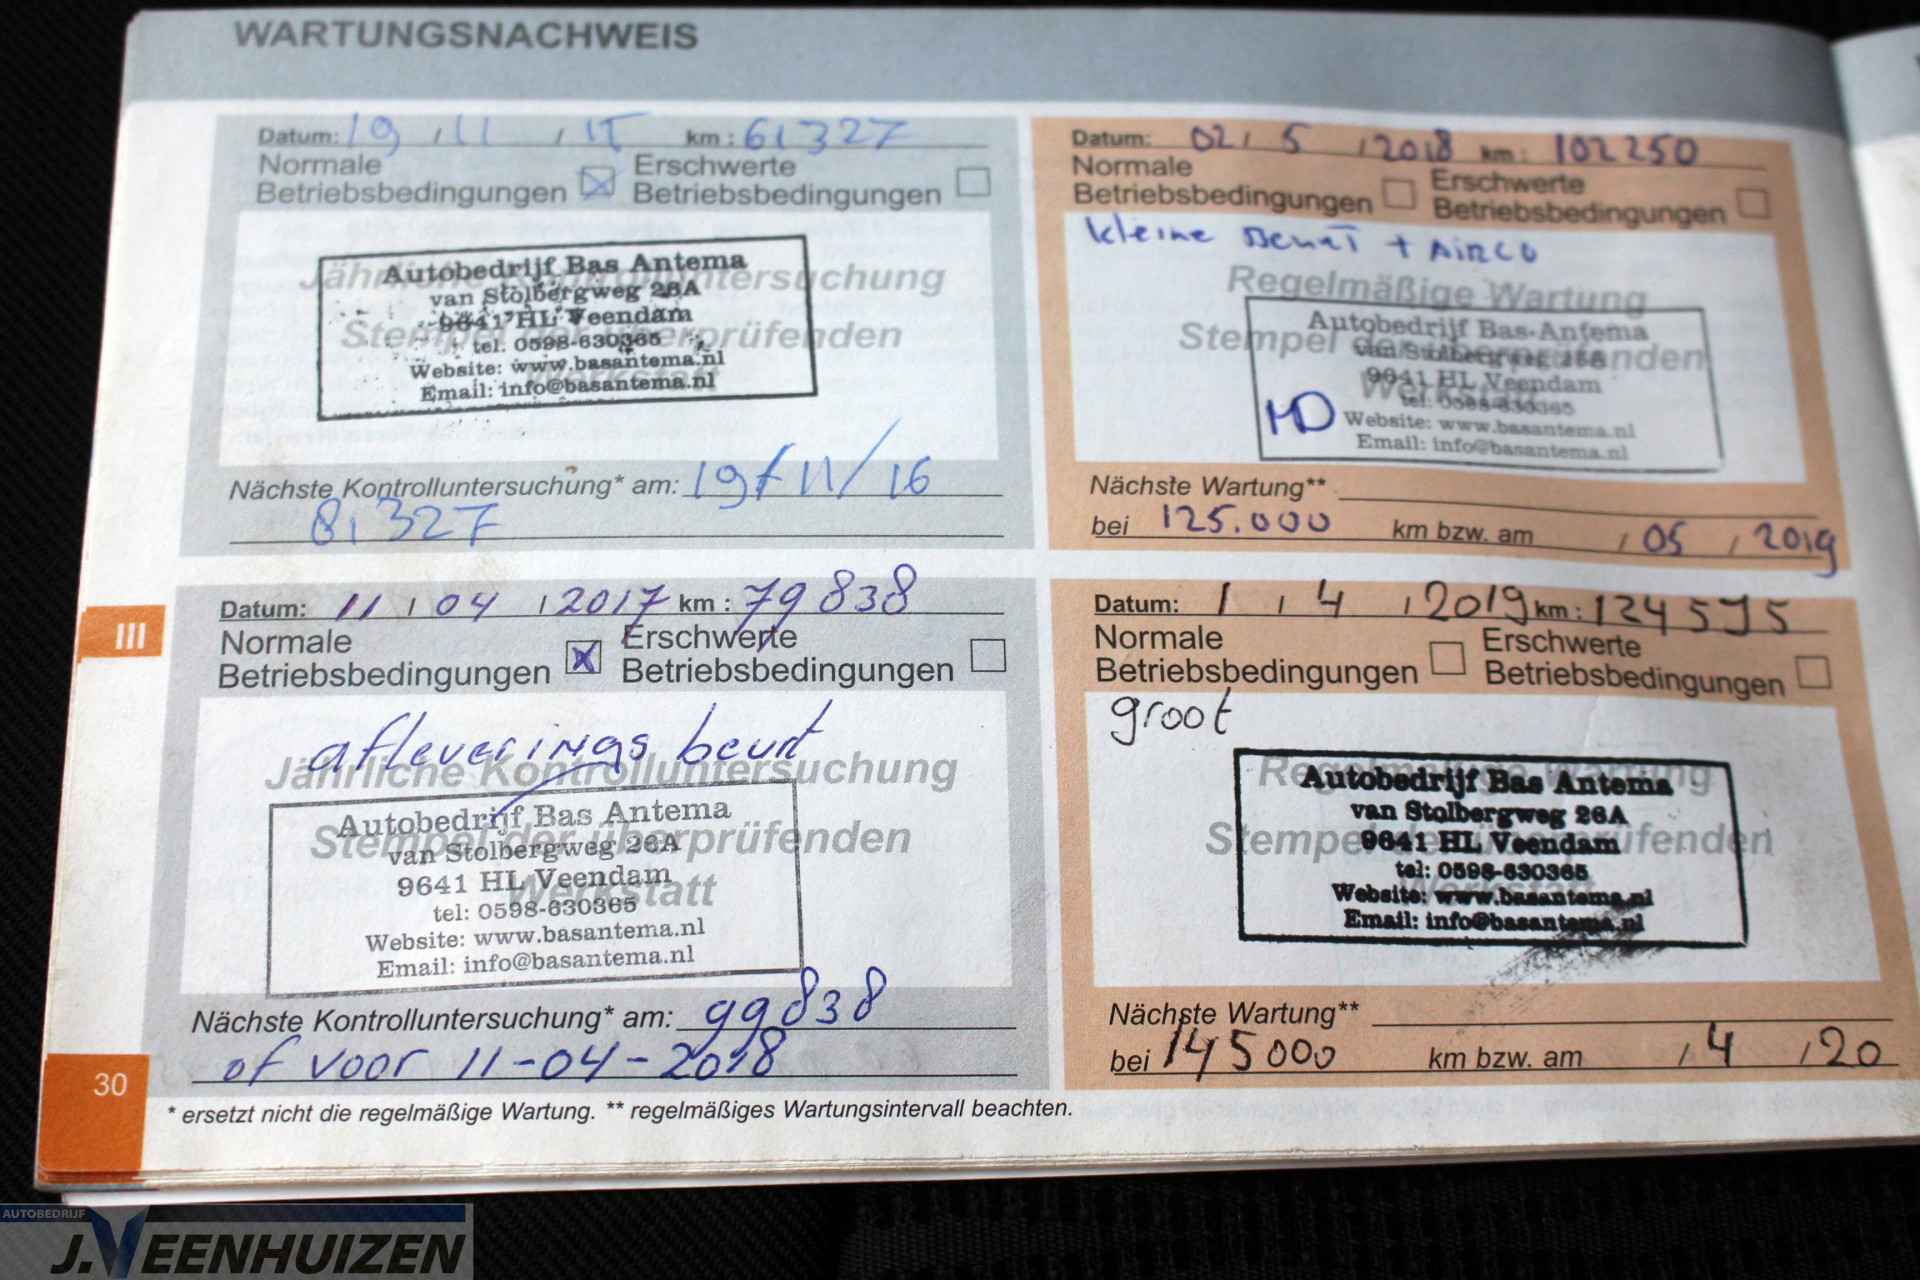 WARTUNGSNACHWEIS
Datum: 19 / 11 / 15 km : 61327
Normale
Betriebsbedingungen
Erschwerte
Betriebsbedingungen
Jährliche Kontrolluntersuchung
Stempel der überprüfenden
Werkstatt
Autobedrijf Bas Antema
van Stolbergweg 26A
9641 HL Veendam
tel. 0598-630365
Website: www.basantema.nl
Email: info@basantema.nl
Nächste Kontrolluntersuchung* am: 19/11/16
81327
Datum: 11 / 04 / 2017 km : 79838
Normale
Betriebsbedingungen
Erschwerte
Betriebsbedingungen
afleverings beurt
Jährliche Kontrolluntersuchung
Stempel der überprüfenden
Werkstatt
Autobedrijf Bas Antema
van Stolbergweg 26A
9641 HL Veendam
tel: 0598-630365
Website: www.basantema.nl
Email: info@basantema.nl
Nächste Kontrolluntersuchung* am: 99838
of voor 11-04-2018
Datum: 02 / 5 / 2018 km : 102250
Normale
Betriebsbedingungen
Erschwerte
Betriebsbedingungen
kleine Beurt + Airco
Regelmäßige Wartung
Stempel der überprüfenden
Werkstatt
Autobedrijf Bas Antema
van Stolbergweg 26A
9641 HL Veendam
tel: 0598-630365
Website: www.basantema.nl
Email: info@basantema.nl
Nächste Wartung**
bei 125.000 km bzw. am / 05 / 2019
Datum: 1 / 4 / 2019 km : 124595
Normale
Betriebsbedingungen
Erschwerte
Betriebsbedingungen
groot
Regelmäßige Wartung
Stempel der überprüfenden
Werkstatt
Autobedrijf Bas Antema
van Stolbergweg 26A
9641 HL Veendam
tel: 0598-630365
Website: www.basantema.nl
Email: info@basantema.nl
Nächste Wartung**
bei 145000 km bzw. am / 4 / 20
* ersetzt nicht die regelmäßige Wartung. ** regelmäßiges Wartungsintervall beachten.
III
30
AUTOBEDRIJF
J.VEENHUIZEN